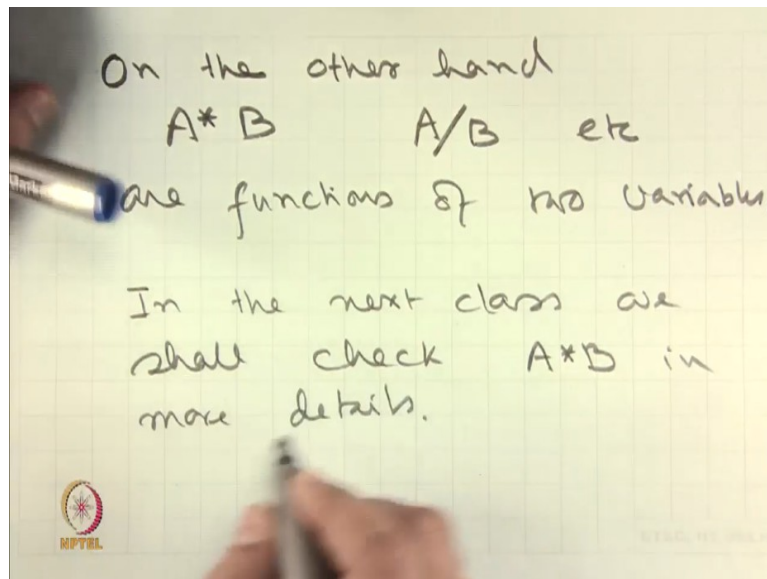 On the other hand
A* B A/B etc
are functions of two variables
In the next class we
shall check A*B in
more details.
NPTEL